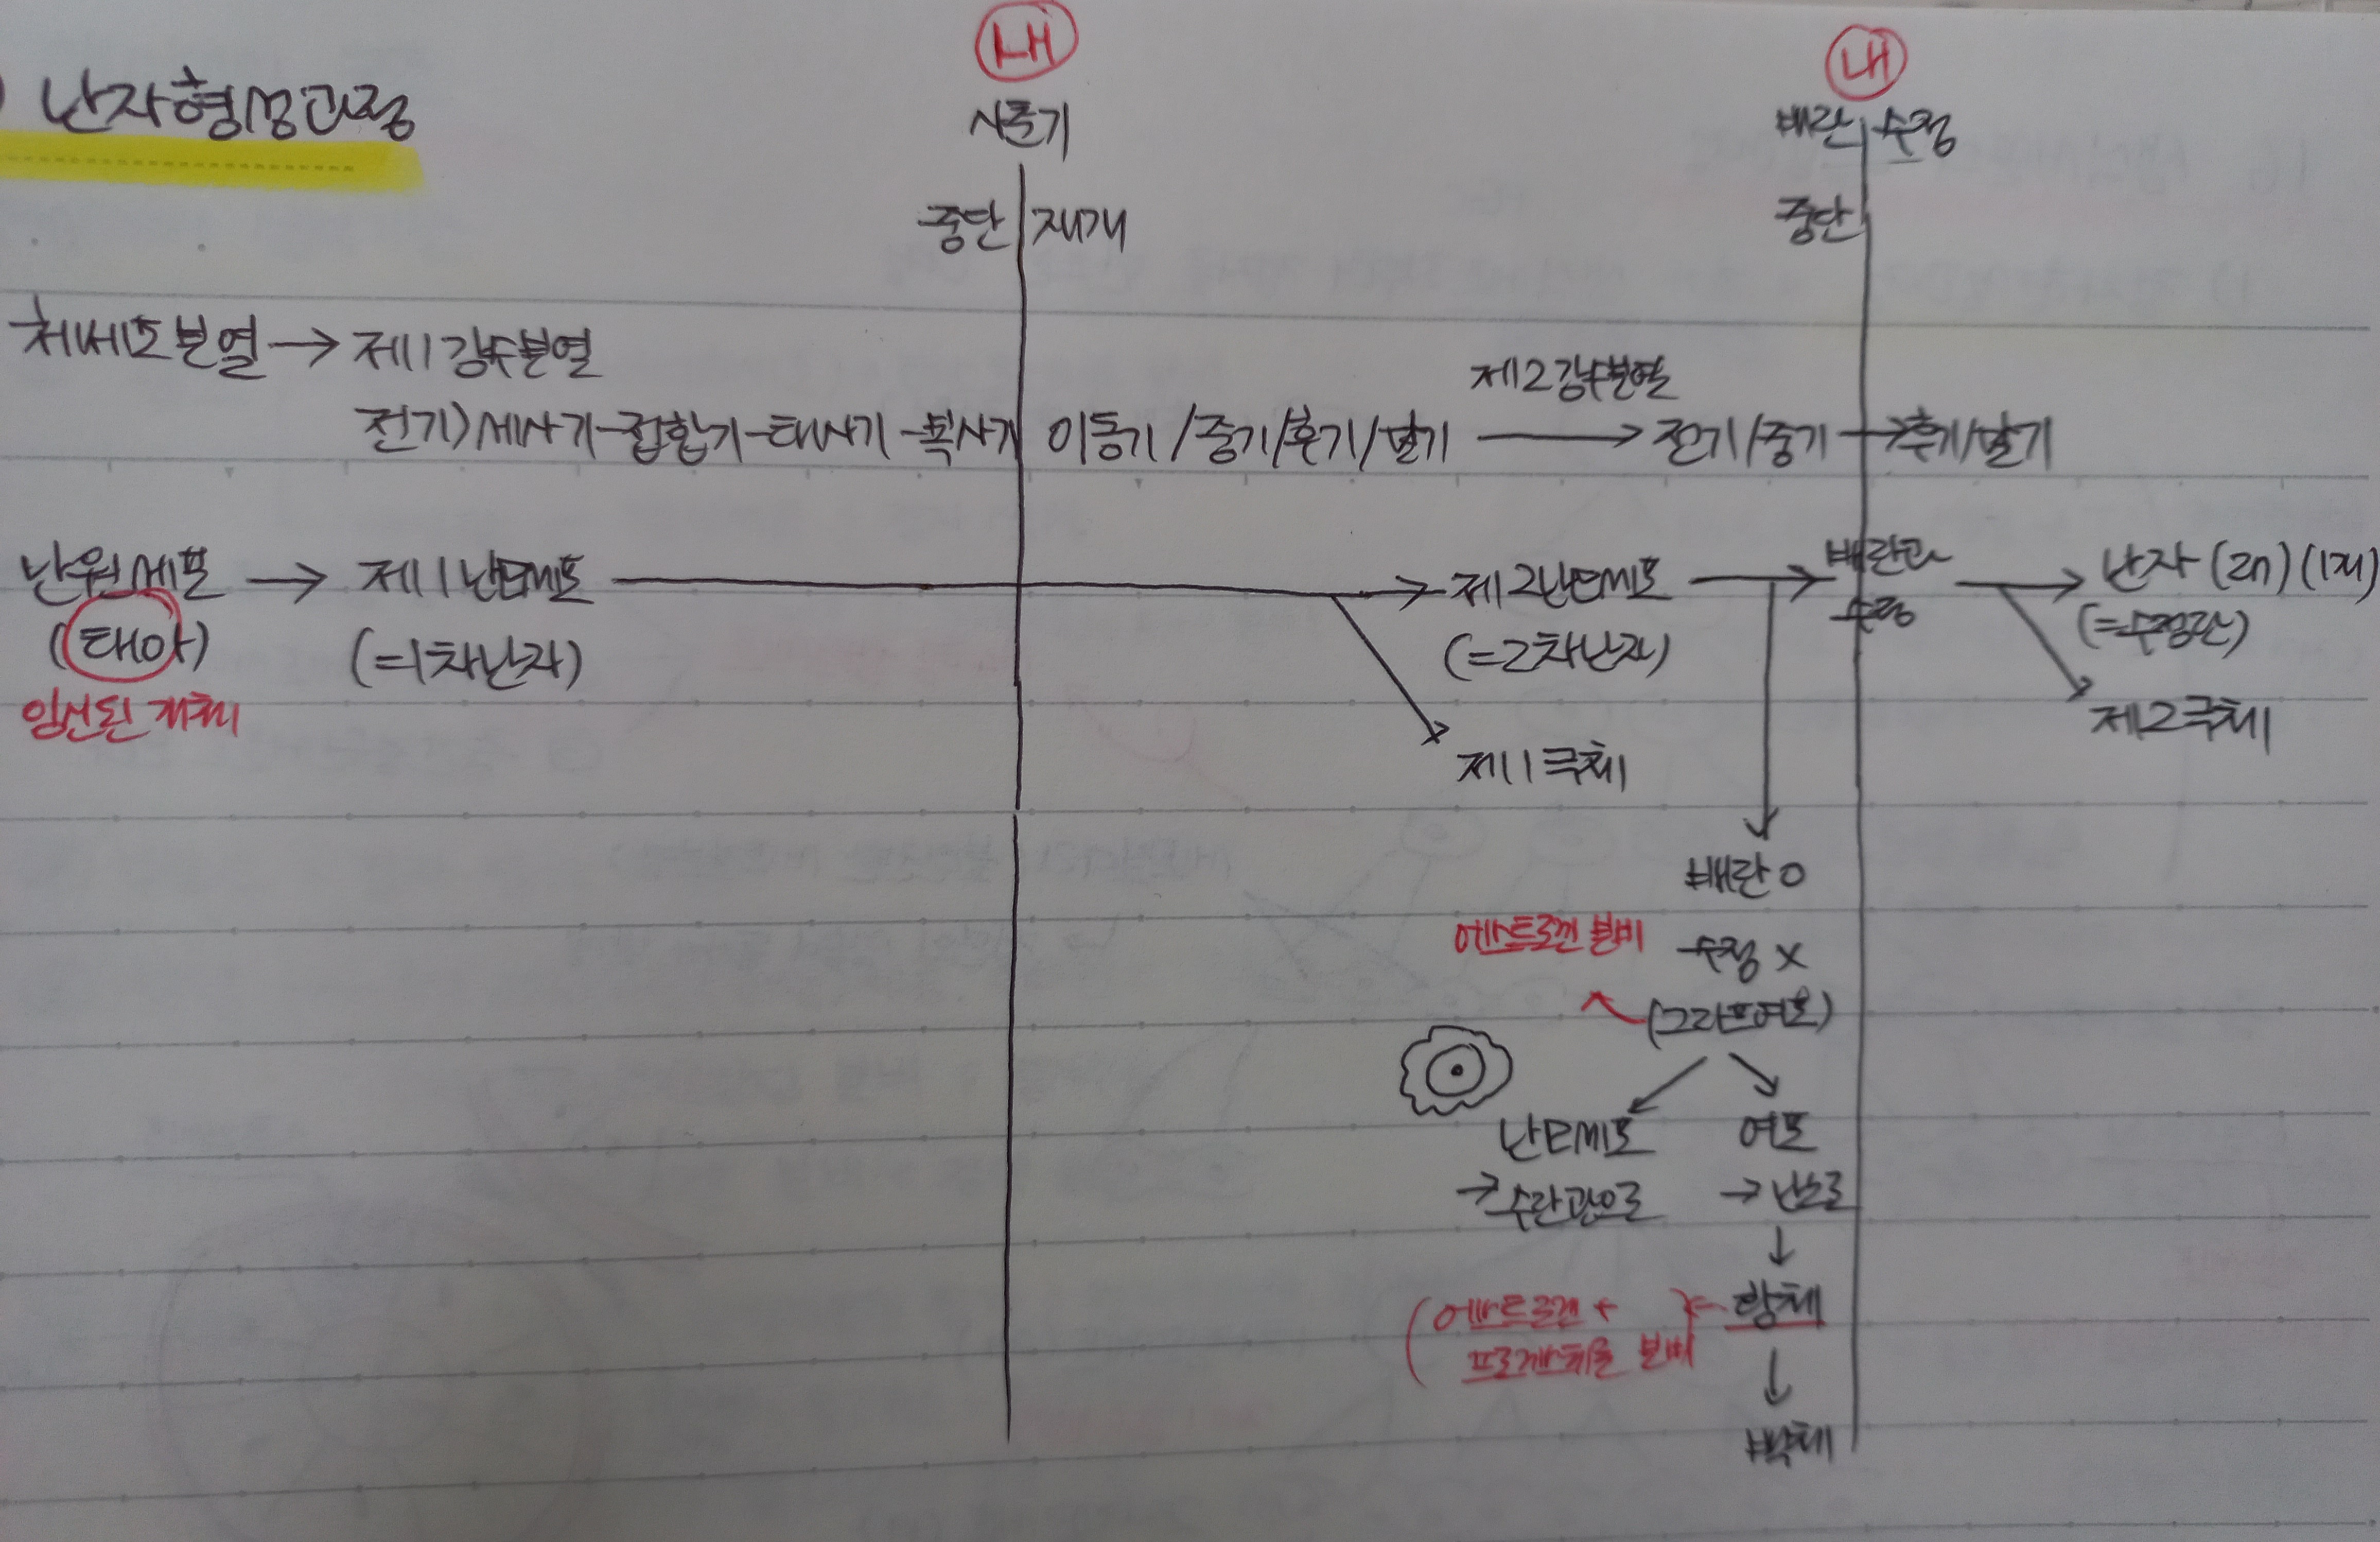 내 내
) 난자형성과정
사춘기 배란 수정
중단 재개 중단
체세포분열 → 제1감수분열
제2감수분열
전기) 세사기-접합기-태사기-복사기 이동기/중기/후기/말기 → 전기/중기 → 후기/말기
난원세포 → 제1난모세포 → 제2난모세포 → 배란과 수정 → 난자 (2n) (1개)
(태아) (=1차난자) (=2차난자) (=수정란)
임신된 개체 제2극체
제1극체
배란 O
에스트로겐 분비 수정 X
(그라프여포)
난모세포 여포
→ 수란관으로 → 난소로
↓
(에스트로겐 + ← 황체
프로게스테론 분비
↓
백체